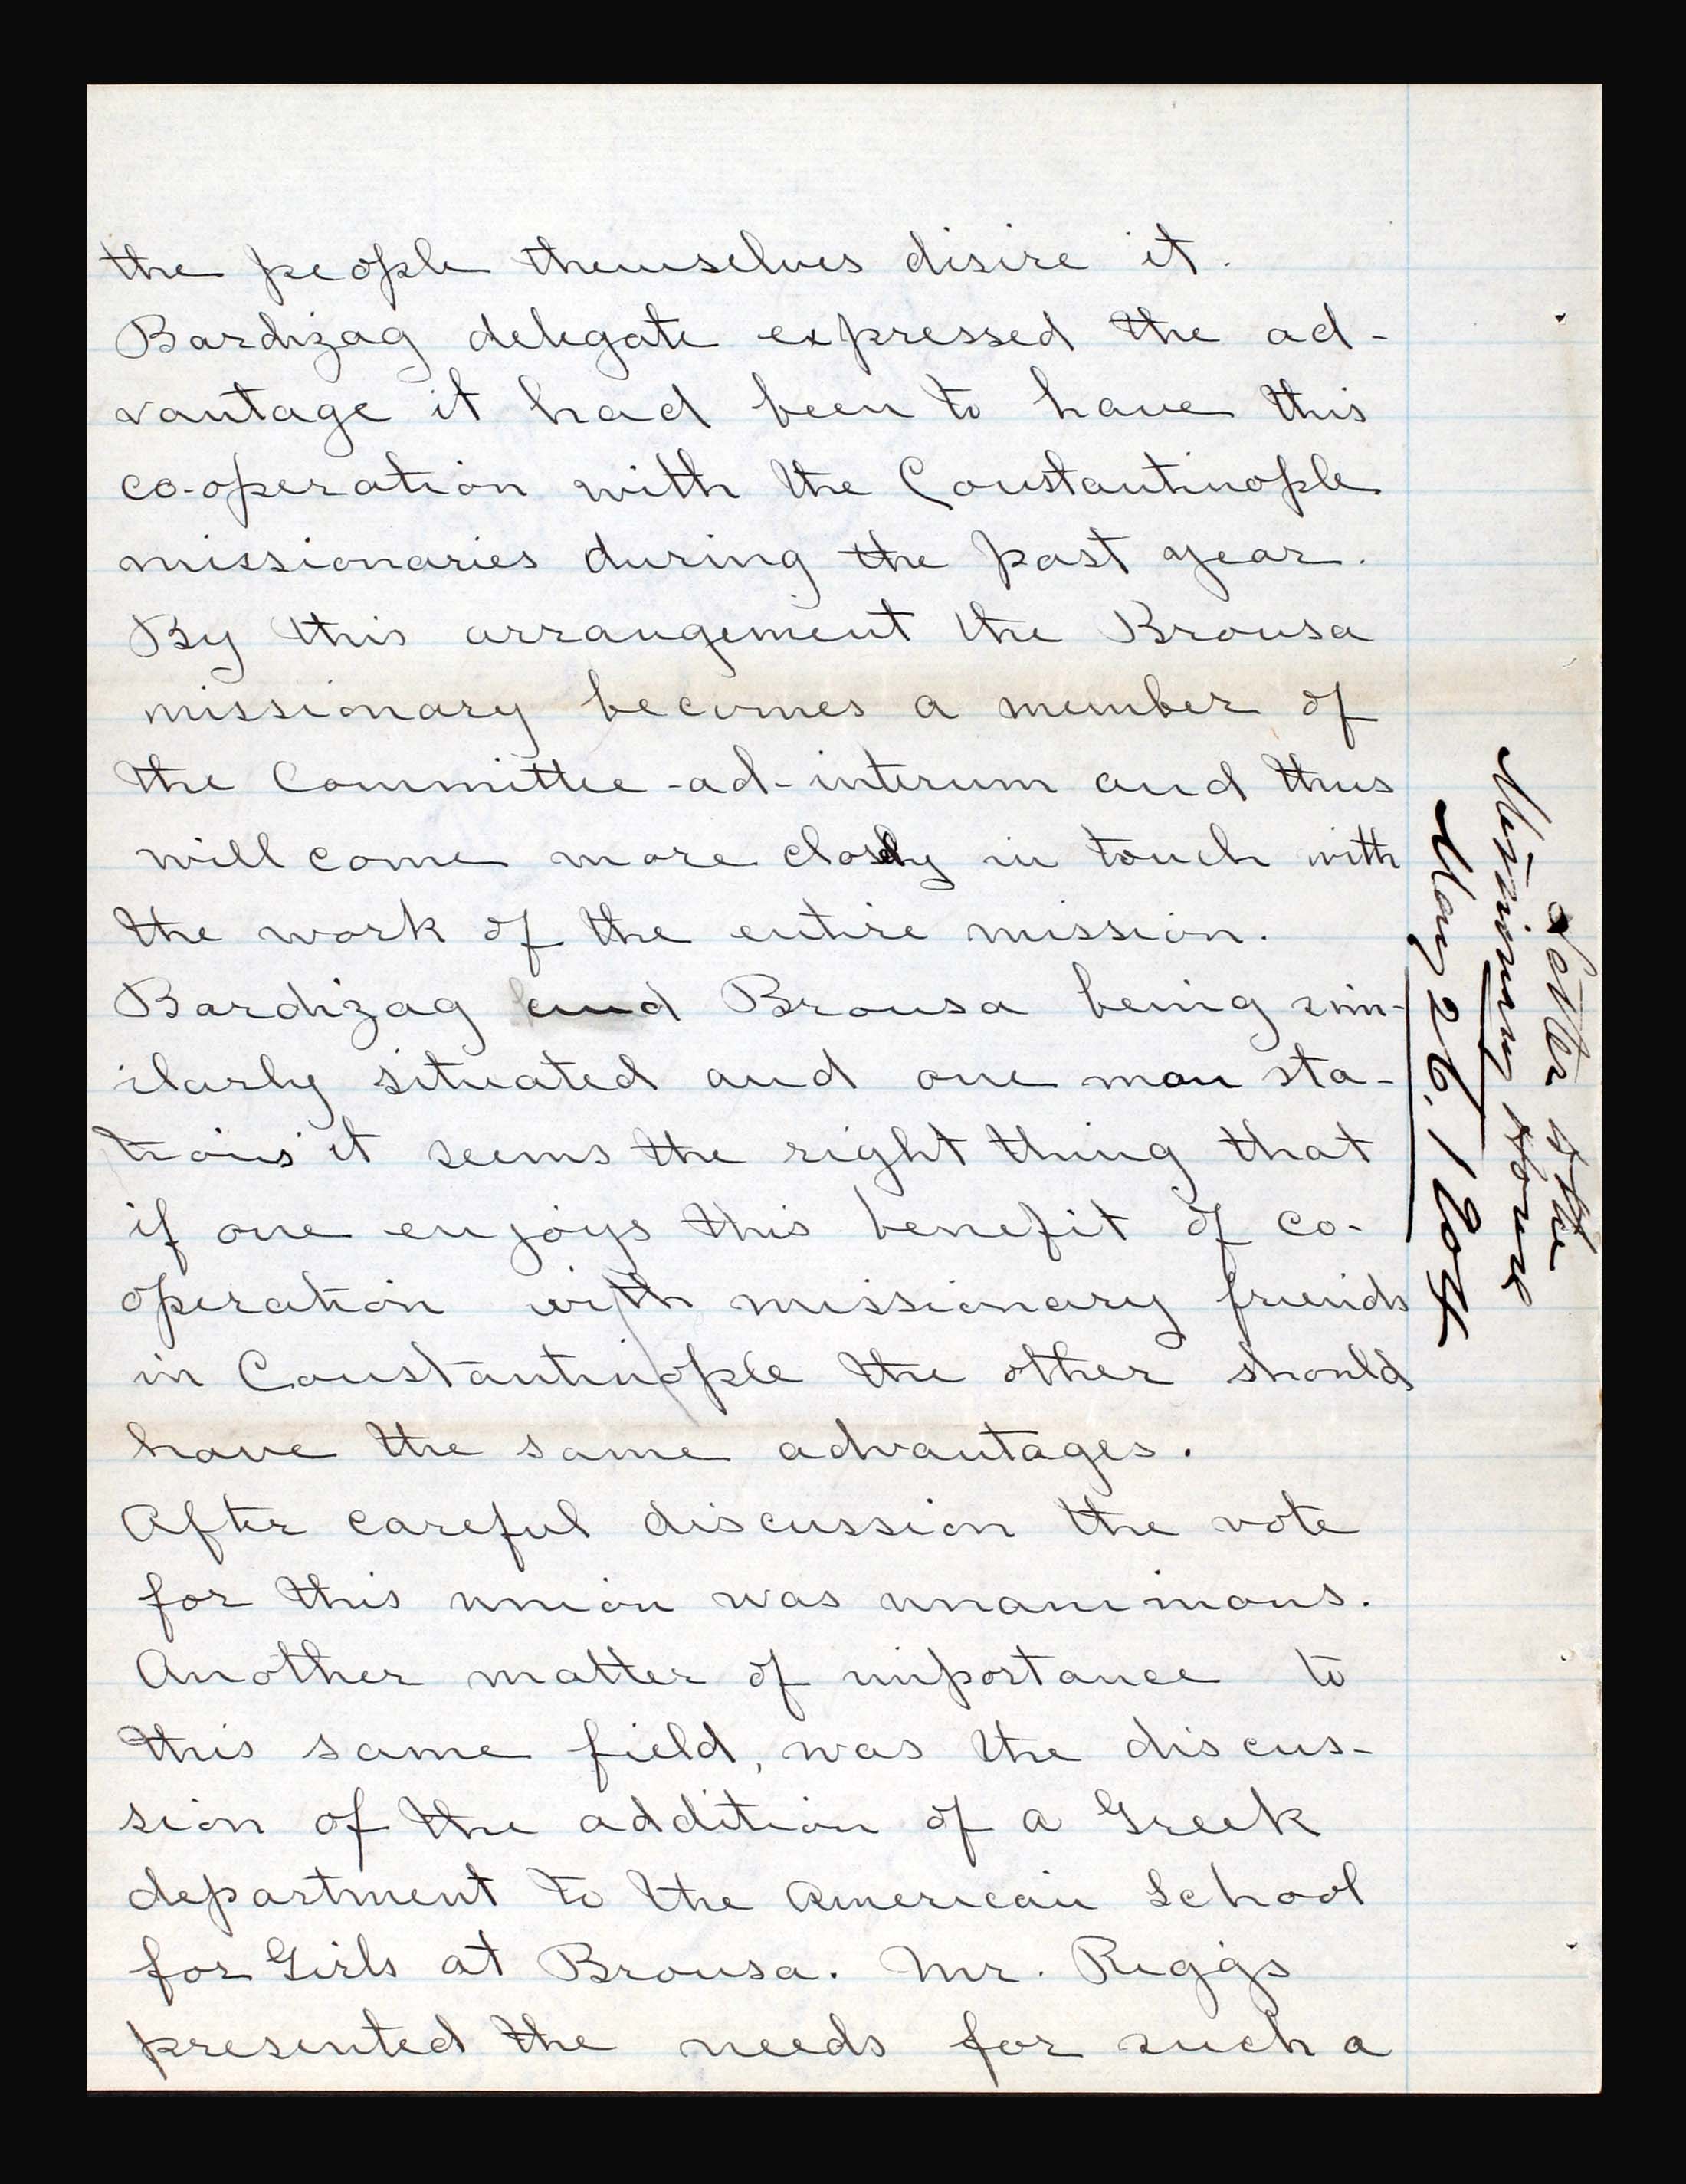 the people themselves disire it.
Bardizag delegate expressed the ad-
vantage it had been to have this
co-operation with the Constantinople
missionaries during the past year.
By this arrangement the Brousa
missionary becomes a member of
the Committee-ad-interum and thus
will come more closely in touch with
the work of the entire mission.
Bardizag and Brousa being sim-
ilarly situated and one man sta-
tions it seems the right thing that
if one enjoys this benefit of co-
operation with missionary friends
in Constantinople the other should
have the same advantages.
After careful discussion the vote
for this union was unanimous.
Another matter of importance to
this same field, was the discus-
sion of the addition of a Greek
department to the American School
for Girls at Brousa. Mr. Riggs
presented the needs for such a
Letter to the
Missionary House
May 26, 1904